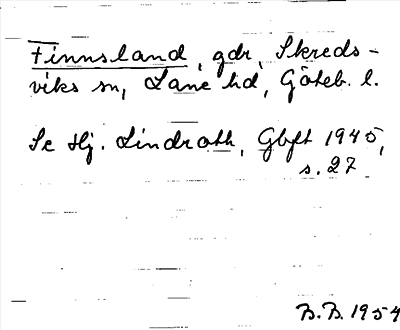 Finnsland, gdr, Skreds-
viks sn, Lane hd, Göteb. l.
Se Hj. Lindroth, Gbft 1945,
s. 27
B.B. 1954